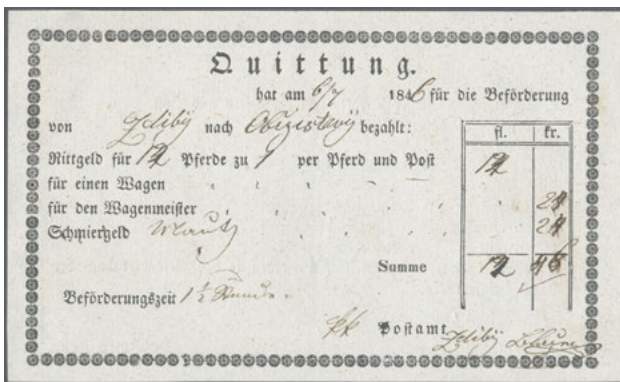 Quittung.
hat am 6/7 1846 für die Beförderung
von Zdiby nach Obřistwy bezahlt:
fl. kr.
Rittgeld für 12 Pferde zu 1 per Pferd und Post 12
für einen Wagen
für den Wagenmeister 24
Schmiergeld Mauth 24
Summe 12 48
Beförderungszeit 1 1/2 Stunde
kk Postamt Zdiby